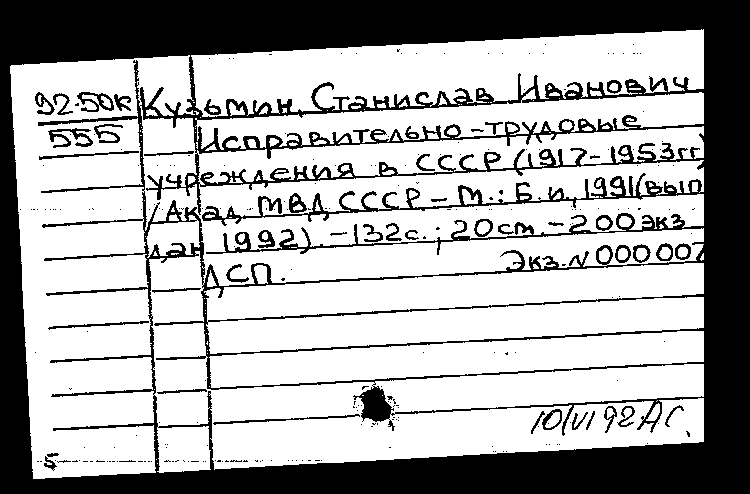 92-50к Кузьмин, Станислав Иванович
555 Исправительно-трудовые
учреждения в СССР (1917-1953гг)
/Акад. МВД СССР – М.: Б.и., 1991(вып.
дан 1992). – 132с.; 20см. – 200экз
ДСП. Экз. N 000007
10/VI 92 АС.
5